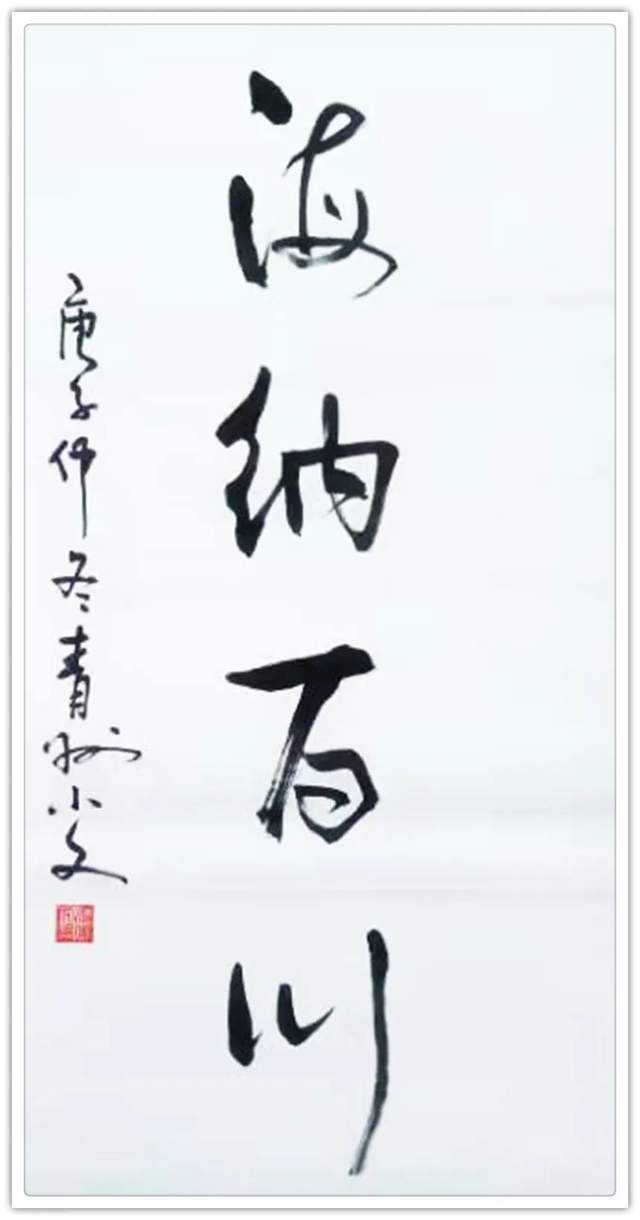 海纳百川
庚子仲冬青州小文